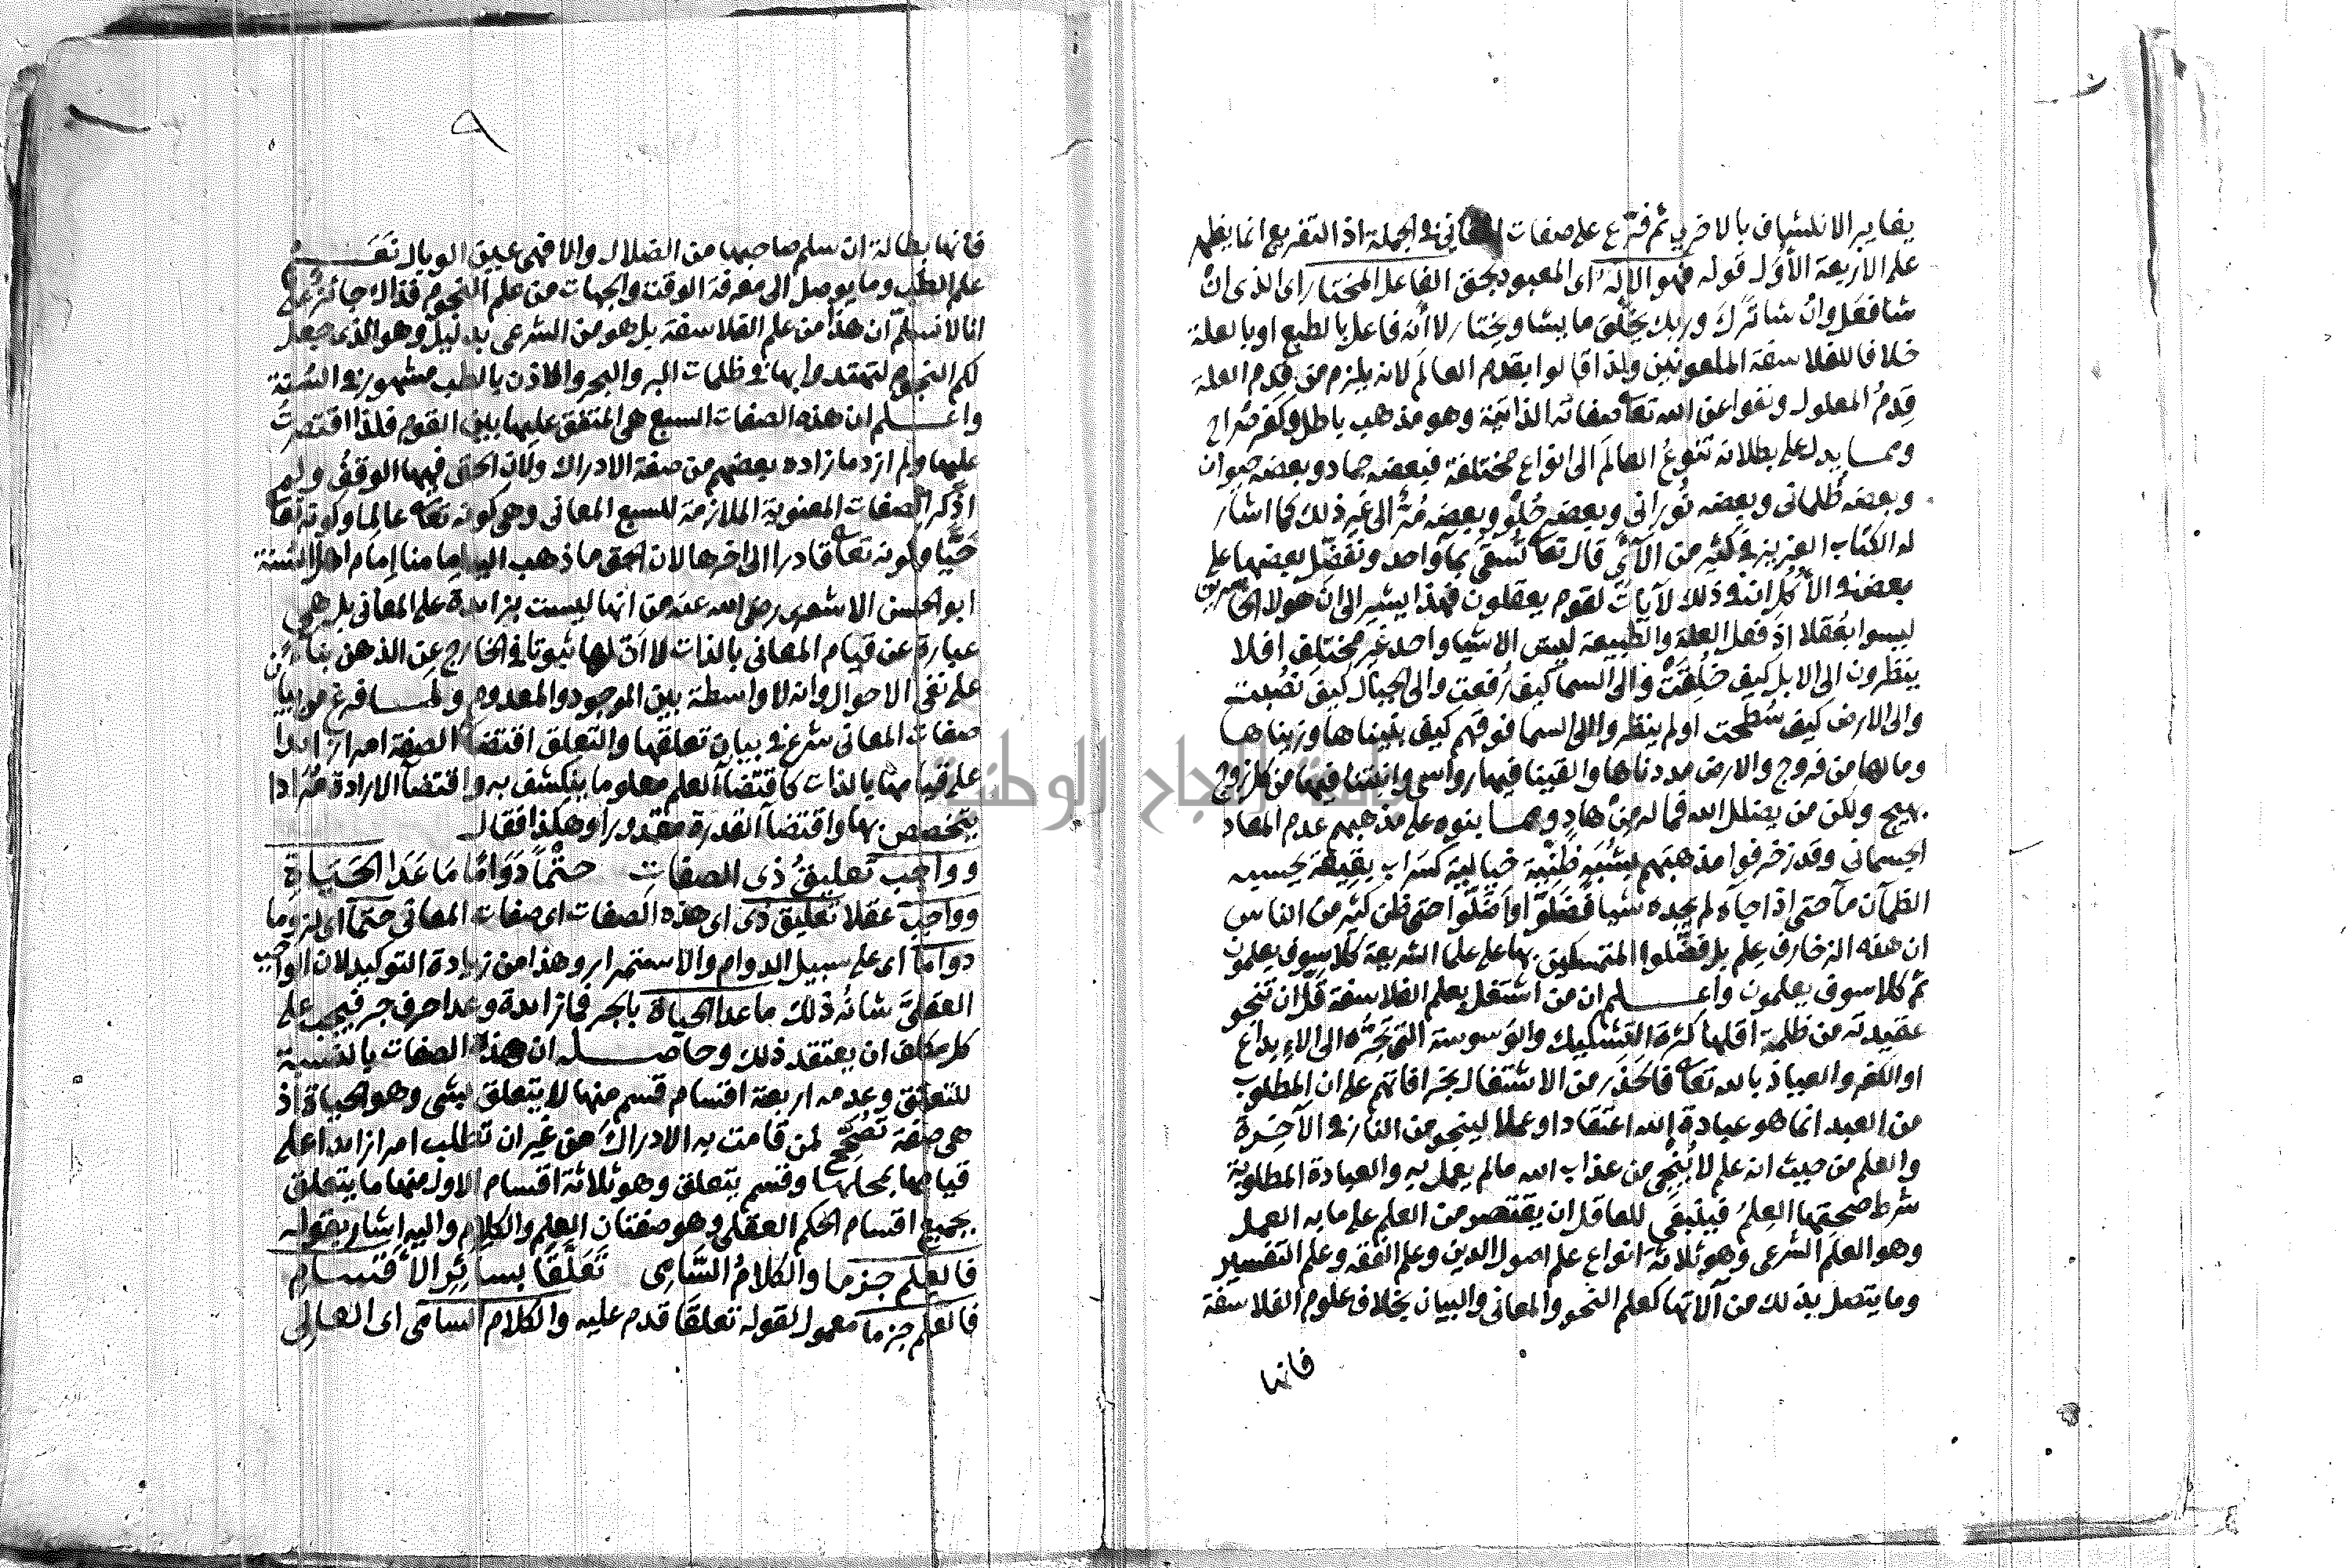 يغاير الانكشاف بالاخرى ثم فرّع على صفات المعاني في الجملة اذ التفريع انما يظهر
على الاربعة الأوَل قوله فهو الالٰه اى المعبود بحق الفاعل المختار اى الذى انْ
شا فعَل وانْ شا ترَك وربك يخلق ما يشا ويختار لا أنه فاعل بالطبع او بالعلة
خلافا للفلاسفة الملعونين ولذا قالوا بقدم العالَم لانه يلزم من قِدم العلة
قِدمُ المعلول ونفوا عن الله تعا صفاته الذاتية وهو مذهب باطل وكفر صُراح
ومما يدل على بطلانه تنوعُ العالَم الى انواع مختلفة فبعضه جماد وبعضه حيوان
وبعضه ظُلمانى وبعضه نُورانى وبعضه حُلو وبعضه مُرّ الى غير ذلك كما اشار
له الكتاب العزيز فى كثير من الآى قال تعا تُسقى بمآ واحد ونفضّل بعضها على
بعض فى الأكُل ان فى ذلك لآيات لقوم يعقلون فهذا يشير الى انّ هولا الخاسرين
ليسوا بعُقلا اذ فعل العلة والطبيعة ليس الا شيا واحد غير مختلف افلا
ينظرون الى الابل كيف خلقت والى السما كيف رُفعت والى الجبال كيف نُصبت
والى الارض كيف سُطحت اولم ينظروا الى السما فوقهم كيف بنيناها وزيناها
وما لها من فروج والارض مددناها والقينا فيها رواسى وانبتنا فيها من كل زوج
بهيج ولكن من يضلل الله فما له مِنْ هادٍ ومما بنوه على مذهبهم عدم المعاد
الجسمانى وقد زخرفوا مذهبَهم بشُبَهٍ ظَنّية خيالية كسَراب بقِيعة يحسبه
الظمآن مآ حتى اذا جآءه لم يجده شيا فَضَلّوا وأضَلّوا حتى ظن كثير من الناس
ان هذه الزخارف عِلم بل فضّلوا المتمسكين بها على علما الشريعة كلّا سوف يعلمون
ثم كلا سوف يعلمون واعلم ان من اشتغل بعلم الفلاسفة قلّ ان تنجو
عقيدته من ظلمة اقلها كثرة التشكيك والوسوسة التى تَجُرّه الى الابداع
او الكفر والعياذ بالله تعا فالحَذَر من الاشتغال بخرافاتهم على ان المطلوب
من العبد انما هو عبادة الله اعتقادا وعملا لينجو من النار فى الآخِرة
والعلم من حيث انه علم لا يُنْجِى من عذاب الله ما لم يعمل به والعبادة المطلوبة
شرط صحتها العِلمُ فينبغى للعاقل ان يقتصر من العلم على ما به العمل
وهو العلم الشرعى وهو ثلاثة انواع علم اصول الدين وعلم الفقه وعلم التفسير
وما يتصل بذلك من آلاتها كعلم النحو والمعانى والبيان بخلاف علوم الفلاسفة
فانها
٩
فانها بطالة ان سلم صاحبها من الضلال والا فهى عين الوبال نَعَم
علم الطب وما يوصل الى معرفة الوقت والجهات من علم النجوم فذاك جائز على
انا لا نسلّم ان هذا من علم الفلاسفة بل هو من الشرعى بدليل وهو الذى جعل
لكم النجوم لتهتدوا بها فى ظلمات البر والبحر والاذن بالطب مشهور فى السُّنة
واعلم ان هذه الصفات السبع هى المتفق عليها بين القوم فلذا اقتصرت
عليها ولم ازد ما زاده بعضهم من صفة الادراك ولان الحق فيها الوقفُ ولم
اذكر الصفات المعنوية الملازمة للسبع المعانى وهى كونه تعا عالِما وكونه تعا
حَيّا وكونه تعا قادرا الى اخرها لان الحق ما ذهب اليه امامنا إمام اهل السُّنة
ابو الحسن الاشعرى رضى الله عنه من انها ليست بزائدة على المعانى بل هى
عبارة عن قيام المعانى بالذات لا أنّ لها ثبوتا فى الخارج عن الذهن بناءً
على نفى الاحوال وانه لا واسطة بين الموجود والمعدوم ولما فرغ من بيان
صفات المعانى شرع فى بيان تعلقها والتعلق اقتضا الصفة امرا زائدا
على قيامها بالذات كاقتضآ العلم معلوما ينكشف به واقتضآ الارادة مُرادا
يتخصص بها واقتضآ القدرة مقدورا وهكذا فقال
وواجب تعليقُ ذى الصفاتِ حتْمًا دَوَامًا مَا عَدَا الحَيَاةِ
وواجب عقلا تعليق ذى اى هذه الصفات اى صفات المعانى حتما اى لزوما
دواما اى على سبيل الدوام والاستمرار وهذا من زيادة التوكيد لان الواجب
العقلىَّ شانُه ذلك ما عدا الحياة بالجر فما زائدة وعدا حرف جر فيجب على
كل مكلف ان يعتقد ذلك وحاصله ان هذه الصفات بالنسبة
للتعلق وعدمه اربعة اقسام قسم منها لا يتعلق بشى وهو الحياة اذ
هى صفة تُصَحِّح لمن قامت به الادراكَ من غير ان تطلب امرا زائدا على
قيامها بمحلها وقسم يتعلق وهو ثلاثة اقسام الاول منها ما يتعلق
بجميع اقسام الحكم العقلى وهو صفتان العلم والكلام واليه اشار بقوله
فالعلم جزما والكلامُ السَّامِى تَعَلّقا بسائرِ الأقسامِ
فالعلم جزما معمول لقوله تعلقَا قدم عليه والكلام السامى اى العالِى
جامعة النجاح الوطنية